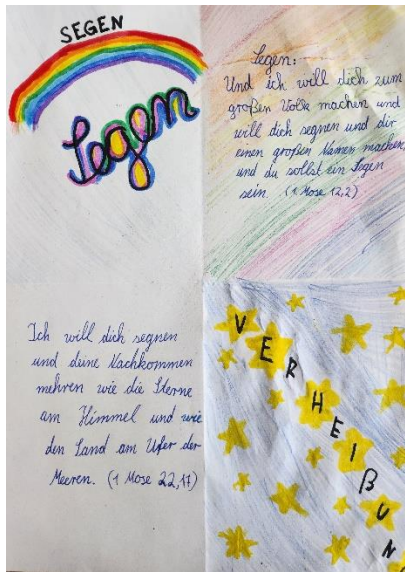 SEGEN
Segen
Segen:
Und ich will dich zum
großen Volk machen und
will dich segnen und dir
einen großen Namen machen,
und du sollst ein Segen
sein. (1 Mose 12,2)
Ich will dich segnen
und deine Nachkommen
mehren wie die Sterne
am Himmel und wie
den Sand am Ufer der
Meeren. (1 Mose 22,17)
VERHEIßUN